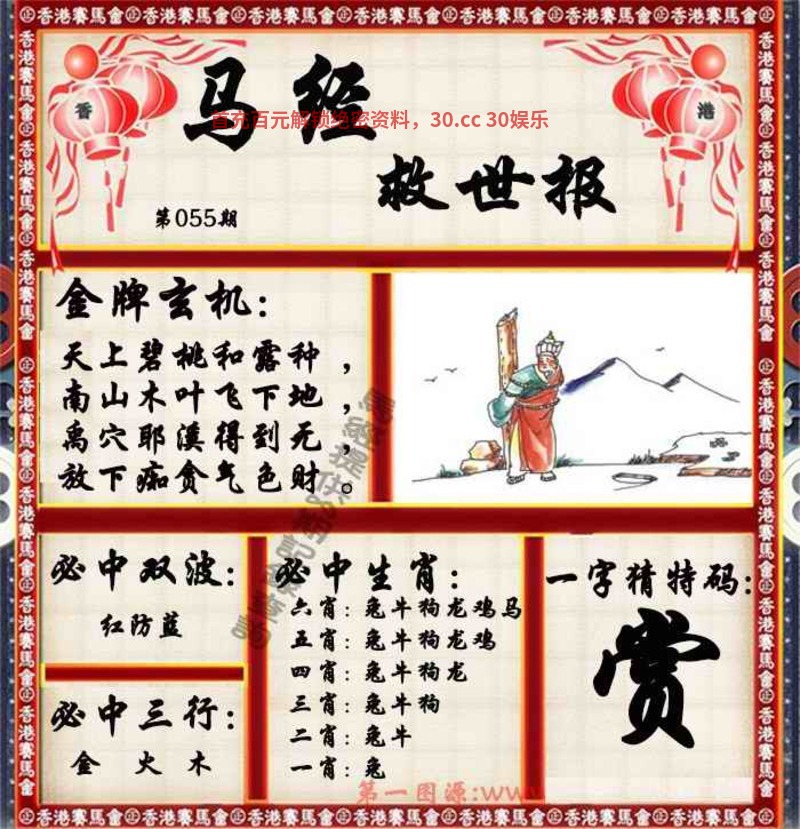 香港賽馬會
香
港
马经
首充百元解锁绝密资料，30.cc 30娱乐
救世报
第055期
金牌玄机：
天上碧桃和露种，
南山木叶飞下地，
禹穴耶溪得到无，
放下痴贪气色财。
必中双波：
红防蓝
必中三行：
金 火 木
必中生肖：
六肖：兔牛狗龙鸡马
五肖：兔牛狗龙鸡
四肖：兔牛狗龙
三肖：兔牛狗
二肖：兔牛
一肖：兔
一字猜特码：
赏
第一图源:www